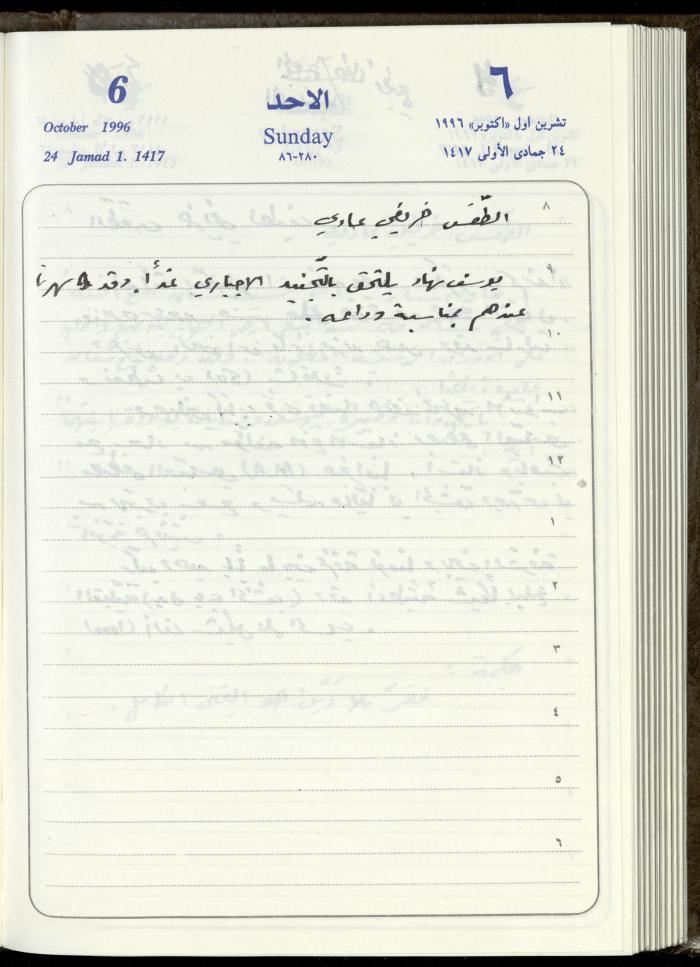 6
الاحد
٦
October 1996
Sunday
تشرين اول «اكتوبر» ١٩٩٦
24 Jamad 1. 1417
٢٨٠-٨٦
٢٤ جمادى الأولى ١٤١٧
٨
الطّقس خريفي عادي
٩
يوسف نهاد يلتحق بالتّجنيد الاجباري غداً، وقد سهرنا
عندهم بمناسبة وداعه.
١٠
١١
١٢
١
٢
٣
٤
٥
٦